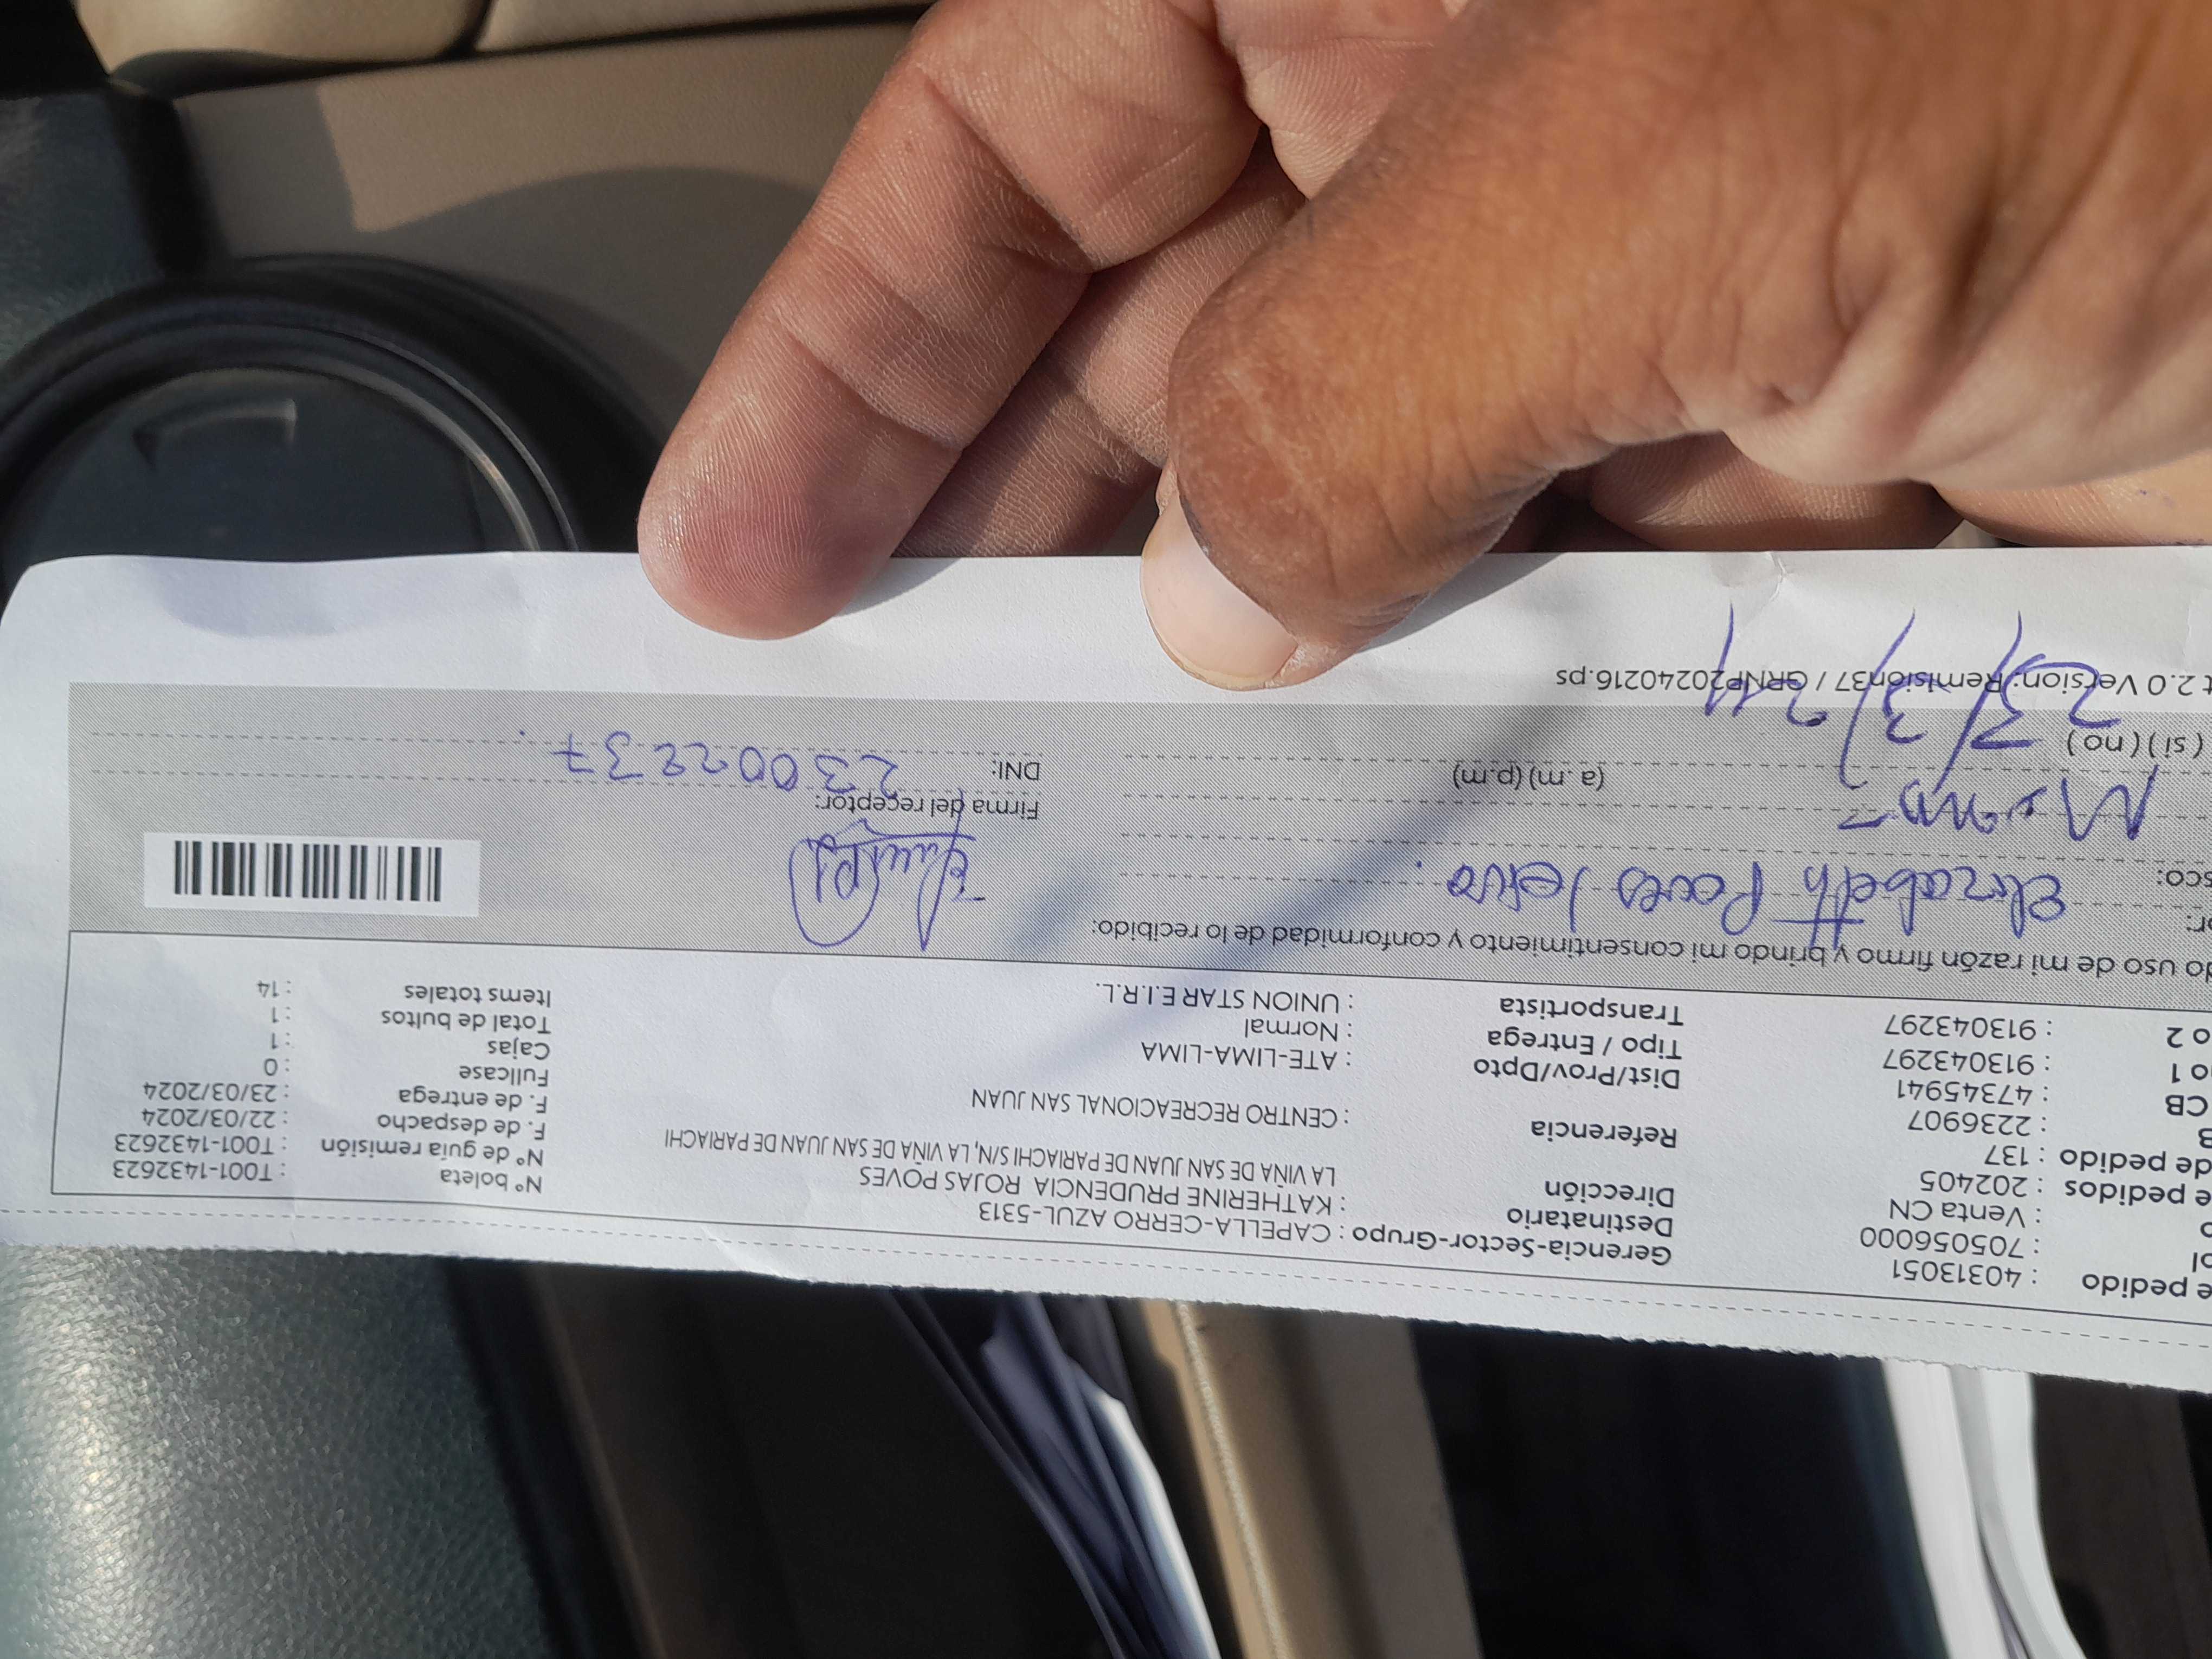 e pedido : 40313051
ol : 705056000
o : Venta CN
e pedidos : 202405
de pedido : 137
B : 2236907
CB : 47345941
o 1 : 913043297
o 2 : 913043297
Gerencia-Sector-Grupo : CAPELLA-CERRO AZUL-5313
Destinatario : KATHERINE PRUDENCIA ROJAS POVES
Dirección LA VIÑA DE SAN JUAN DE PARIACHI S/N, LA VIÑA DE SAN JUAN DE PARIACHI
Referencia : CENTRO RECREACIONAL SAN JUAN
Dist/Prov/Dpto : ATE-LIMA-LIMA
Tipo / Entrega : Normal
Transportista : UNION STAR E.I.R.L.
N° boleta : T001-1432623
N° de guía remisión : T001-1432623
F. de despacho : 22/03/2024
F. de entrega : 23/03/2024
Fullcase : 0
Cajas : 1
Total de bultos : 1
Items totales : 14
do uso de mi razón firmo y brindo mi consentimiento y conformidad de lo recibido:
or: Elizabeth Poves
sco: Mamá
(a. m) (p.m)
(si) (no) 23/3/24
Firma del receptor:
DNI: 23002237
t 2.0 Version: Remisión37 / GRNP20240216.ps